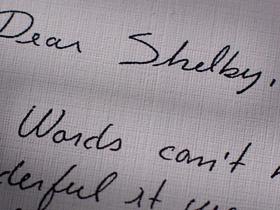 Dear Shelby,
Words can't
derful it